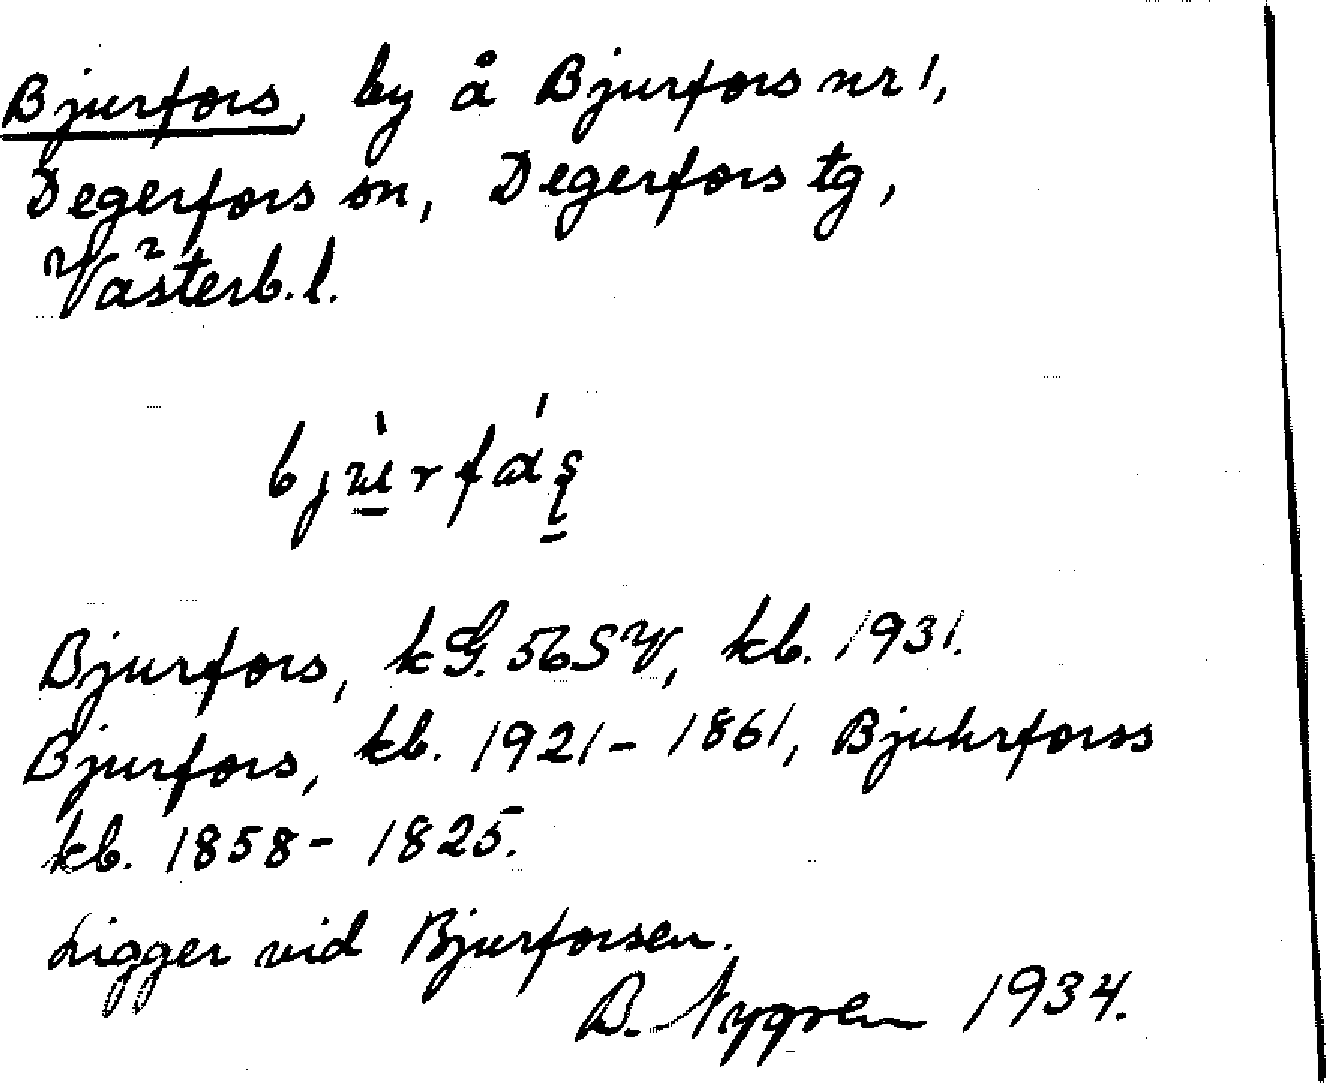 Bjurfors, by å Bjurfors nr 1,
Degerfors sn, Degerfors tg,
Västerb. l.
Bjurfors, kG. 56SV, kb. 1931.
Bjurfors, kb. 1921-1861, Bjuhrforss
kb. 1858-1825.
Ligger vid Bjurforsen.
B. Nygren 1934.